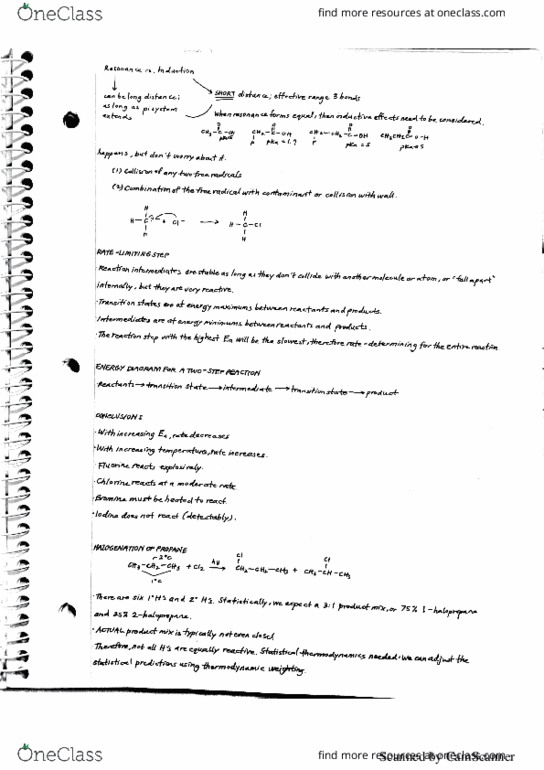 OneClass
find more resources at oneclass.com
Resonance vs. Induction
can be long distance;
as long as pi system
extends
SHORT distance; effective range 3 bonds
When resonance forms equal, then inductive effects need to be considered.
happens, but don't worry about it.
(1) Collision of any two free radicals
(2) Combination of the free radical with contaminant or collision with wall.
RATE-LIMITING STEP
·Reaction intermediates are stable as long as they don't collide with another molecule or atom, or "fall apart"
internally, but they are very reactive.
·Transition states are at energy maximums between reactants and products.
·Intermediates are at energy minimums between reactants and products.
·The reaction step with the highest Ea will be the slowest, therefore rate-determining for the entire reaction
ENERGY DIAGRAM FOR A TWO-STEP REACTION
Reactants → transition state → intermediate → transition state → product
CONCLUSIONS
·With increasing Ea, rate decreases
·With increasing temperature, rate increases.
·Fluorine reacts explosively.
·Chlorine reacts at a moderate rate
·Bromine must be heated to react.
·Iodine does not react (detectably).
HALOGENATION OF PROPANE
2°C
Cl Cl
CH3-CH2-CH3 + Cl2 hν → CH2-CH2-CH3 + CH3-CH-CH3
1°C
·There are six 1° H's and 2° H's. Statistically, we expect a 3:1 product mix, or 75% 1-halopropane
and 25% 2-halopropane.
·ACTUAL product mix is typically not even close!
Therefore, not all H's are equally reactive. Statistical thermodynamics needed. we can adjust the
statistical predictions using thermodynamic weighting.
OneClass
find more resources at oneclass.com
Scanned by CamScanner